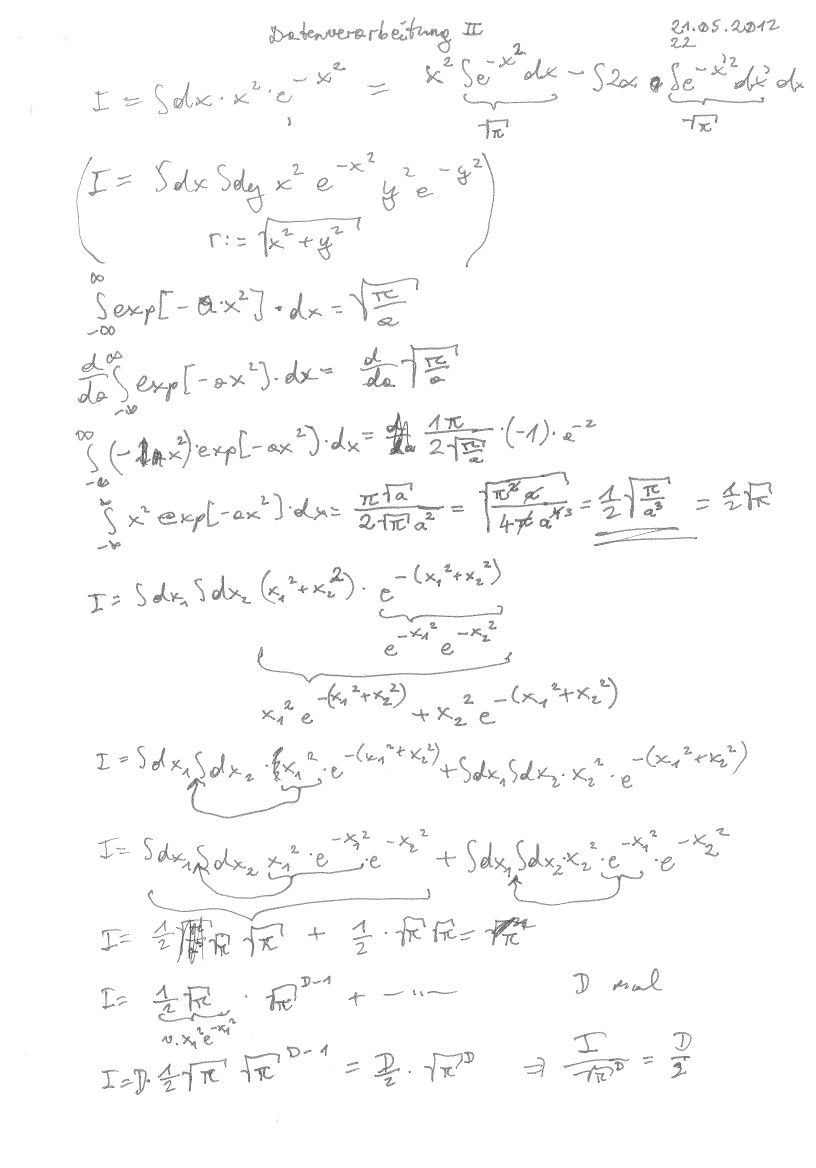 Datenverarbeitung II 21.05.2012
22
I = ∫dx · x² · e^(-x²) = x² ∫e^(-x²) dx - ∫2x · ∫e^(-x'²) dx' dx
√π √π
( I = ∫dx ∫dy x² e^(-x²) y² e^(-y²)
r := √(x² + y²) )
∫_(-∞)^∞ exp[-a·x²] · dx = √(π/a)
d/da ∫_(-∞)^∞ exp[-ax²] · dx = d/da √(π/a)
∫_(-∞)^∞ (-x²) · exp[-ax²] · dx = 1π / (2√(π/a)) · (-1) · a^(-2)
∫_(-∞)^∞ x² exp[-ax²] · dx = π√a / (2√π a²) = √(π² a / (4π a⁴ ³)) = 1/2 √(π/a³) = 1/2 √π
I = ∫dx₁ ∫dx₂ (x₁² + x₂²) · e^(-(x₁²+x₂²))
e^(-x₁²) e^(-x₂²)
x₁² e^(-(x₁²+x₂²)) + x₂² e^(-(x₁²+x₂²))
I = ∫dx₁ ∫dx₂ · x₁² · e^(-(x₁²+x₂²)) + ∫dx₁ ∫dx₂ · x₂² · e^(-(x₁²+x₂²))
I = ∫dx₁ ∫dx₂ x₁² · e^(-x₁²) · e^(-x₂²) + ∫dx₁ ∫dx₂ · x₂² · e^(-x₁²) · e^(-x₂²)
I = 1/2 √π √π + 1/2 · √π √π = π
I = 1/2 √π · √π^(D-1) + - ‥ - D mal
v. x₁² e^(-x₁²)
I = D · 1/2 √π √π^(D-1) = D/2 · √π^D ⇒ I/√π^D = D/2